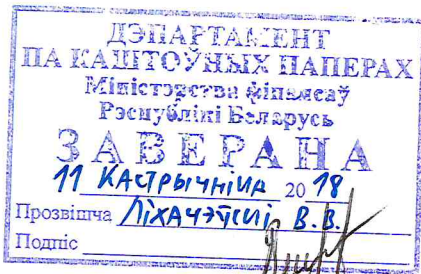 ДЭПАРТАМЕНТ
ПА КАШТОЎНЫХ ПАПЕРАХ
Міністэрства фінансаў
Рэспублікі Беларусь
ЗАВЕРАНА
11 КАСТРЫЧНІКА 2018
Прозвішча ЛІХАЧЭЎСКІ В.В.
Подпіс